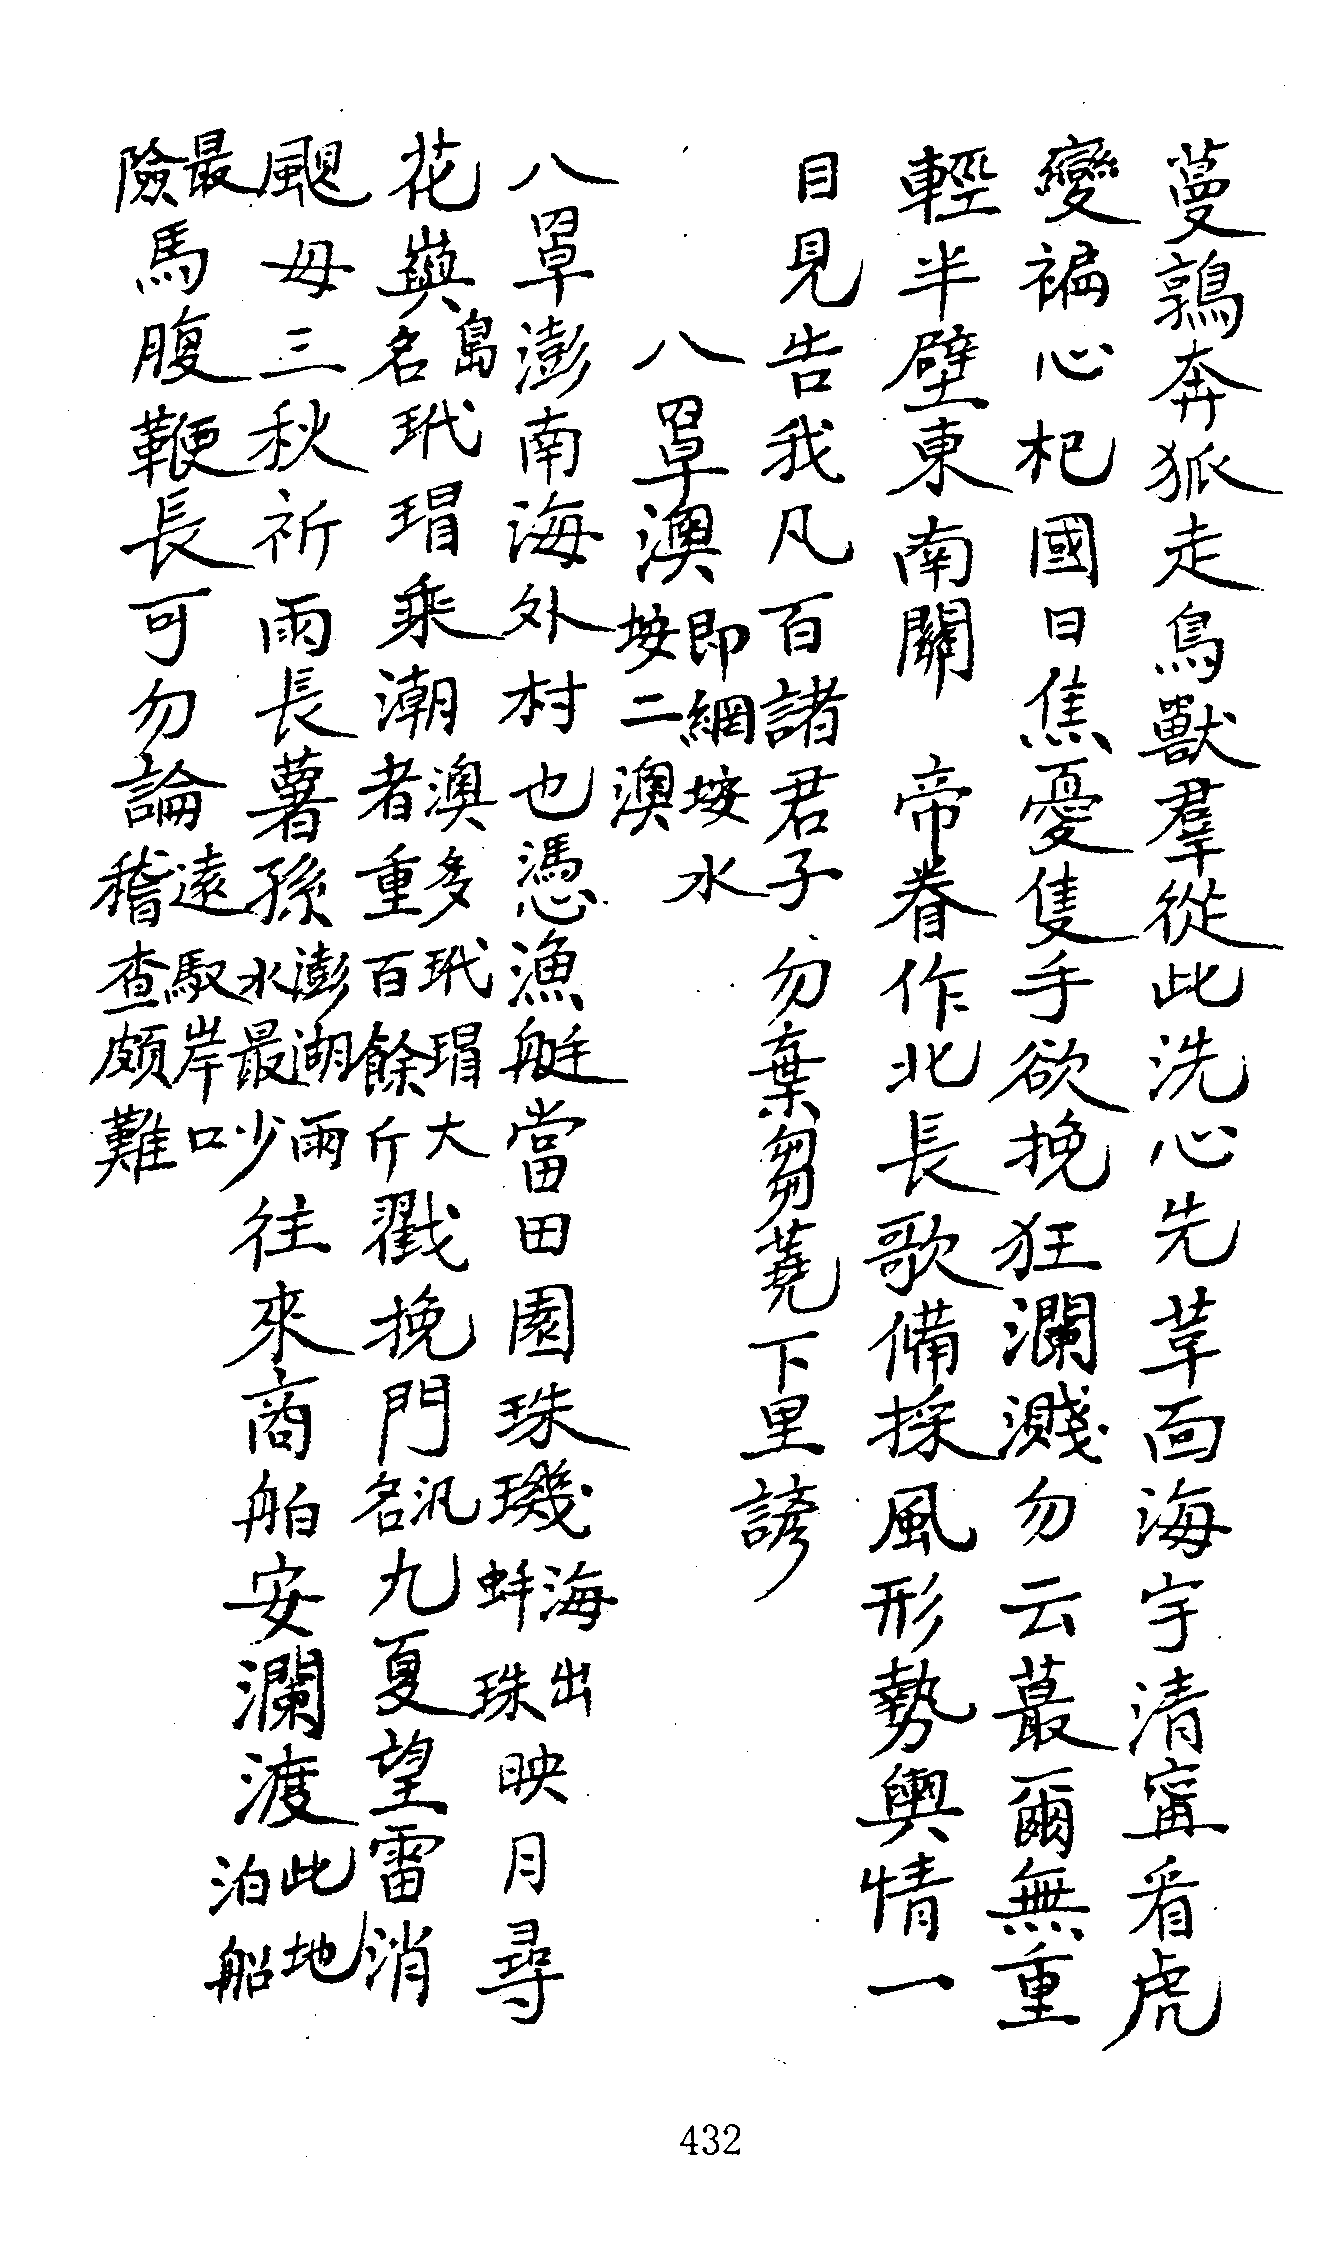 蔓鶉奔狐走鳥獸羣從此洗心先革面海宇清寧看虎
變褊心杞國日焦憂隻手欲挽狂瀾濺勿云蕞爾無重
輕半壁東南關　帝眷作北長歌備採風形勢輿情一
目見告我凡百諸君子勿棄芻蕘下里諺
八罩澳即網垵水垵二澳
八罩澎南海外村也憑漁艇當田園珠璣海出蚌珠映月尋
花嶼島名玳瑁乘潮澳多玳瑁大者重百餘斤戳挽門汛名九夏望雷消
颶母三秋祈雨長薯孫澎湖雨水最少往來商舶安瀾渡此地泊船
最險馬腹鞭長可勿論遠馭岸口稽查頗難
432